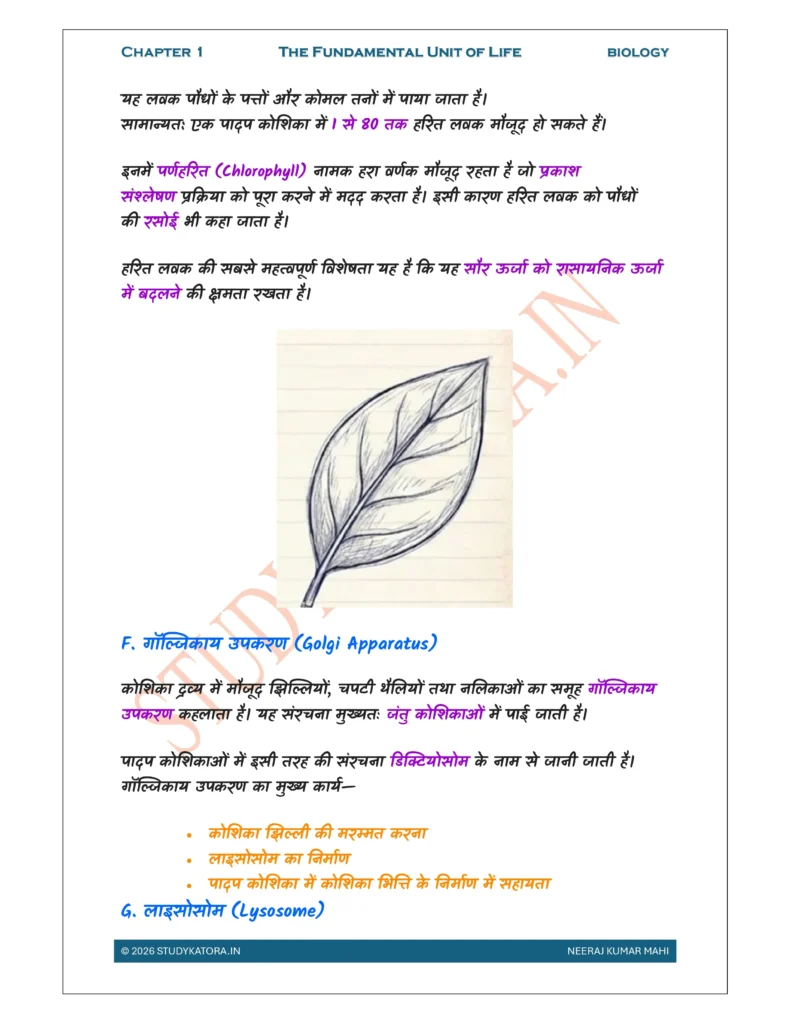 CHAPTER 1 THE FUNDAMENTAL UNIT OF LIFE BIOLOGY
यह लवक पौधों के पत्तों और कोमल तनों में पाया जाता है।
सामान्यतः एक पादप कोशिका में 1 से 80 तक हरित लवक मौजूद हो सकते हैं।
इनमें पर्णहरित (Chlorophyll) नामक हरा वर्णक मौजूद रहता है जो प्रकाश
संश्लेषण प्रक्रिया को पूरा करने में मदद करता है। इसी कारण हरित लवक को पौधों
की रसोई भी कहा जाता है।
हरित लवक की सबसे महत्वपूर्ण विशेषता यह है कि यह सौर ऊर्जा को रासायनिक ऊर्जा
में बदलने की क्षमता रखता है।
STUDYKATORA.IN
F. गॉल्जिकाय उपकरण (Golgi Apparatus)
कोशिका द्रव्य में मौजूद झिल्लियों, चपटी थैलियों तथा नलिकाओं का समूह गॉल्जिकाय
उपकरण कहलाता है। यह संरचना मुख्यतः जंतु कोशिकाओं में पाई जाती है।
पादप कोशिकाओं में इसी तरह की संरचना डिक्टियोसोम के नाम से जानी जाती है।
गॉल्जिकाय उपकरण का मुख्य कार्य—
• कोशिका झिल्ली की मरम्मत करना
• लाइसोसोम का निर्माण
• पादप कोशिका में कोशिका भित्ति के निर्माण में सहायता
G. लाइसोसोम (Lysosome)
© 2026 STUDYKATORA.IN NEERAJ KUMAR MAHI